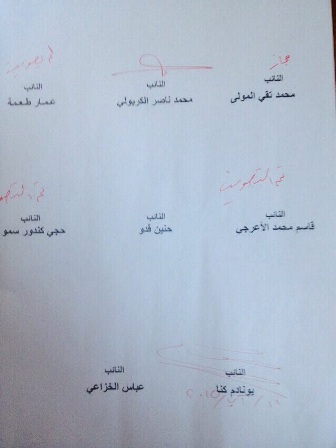 مجاز
النائب
محمد تقي المولى
النائب
محمد ناصر الكربولي
تم التصويت
النائب
عمار طعمة
تم التصويت
النائب
قاسم محمد الأعرجي
النائب
حنين قدو
تم التصو
النائب
حجي كندور سمو
النائب
يونادم كنا
النائب
عباس الخزاعي